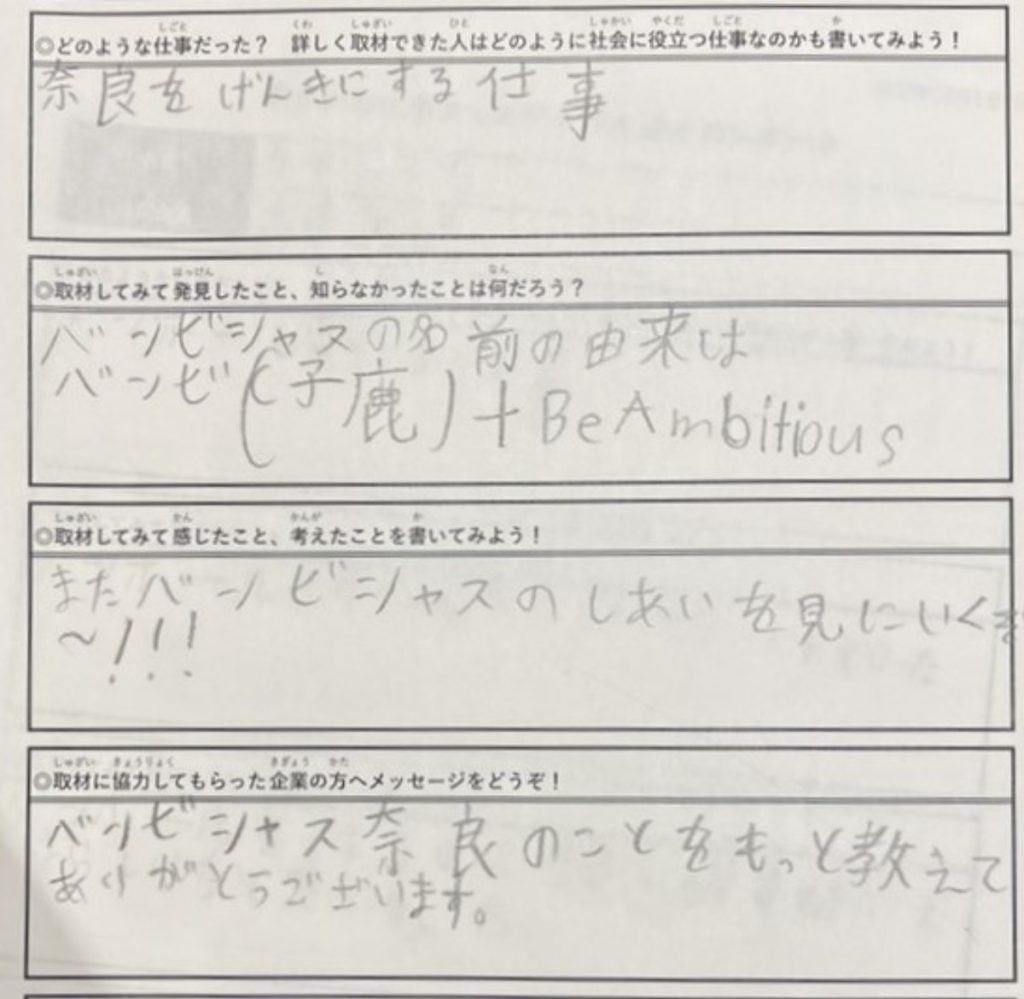 ◎どのような仕事だった？ 詳しく取材できた人はどのように社会に役立つ仕事なのかも書いてみよう！
奈良をげんきにする仕事
◎取材してみて発見したこと、知らなかったことは何だろう？
バンビシャスの名前の由来は
バンビ(子鹿)+BeAmbitious
◎取材してみて感じたこと、考えたことを書いてみよう！
またバンビシャスのしあいを見にいくぞ
～!!!
◎取材に協力してもらった企業の方へメッセージをどうぞ！
バンビシャス奈良のことをもっと教えて
ありがとうございます。